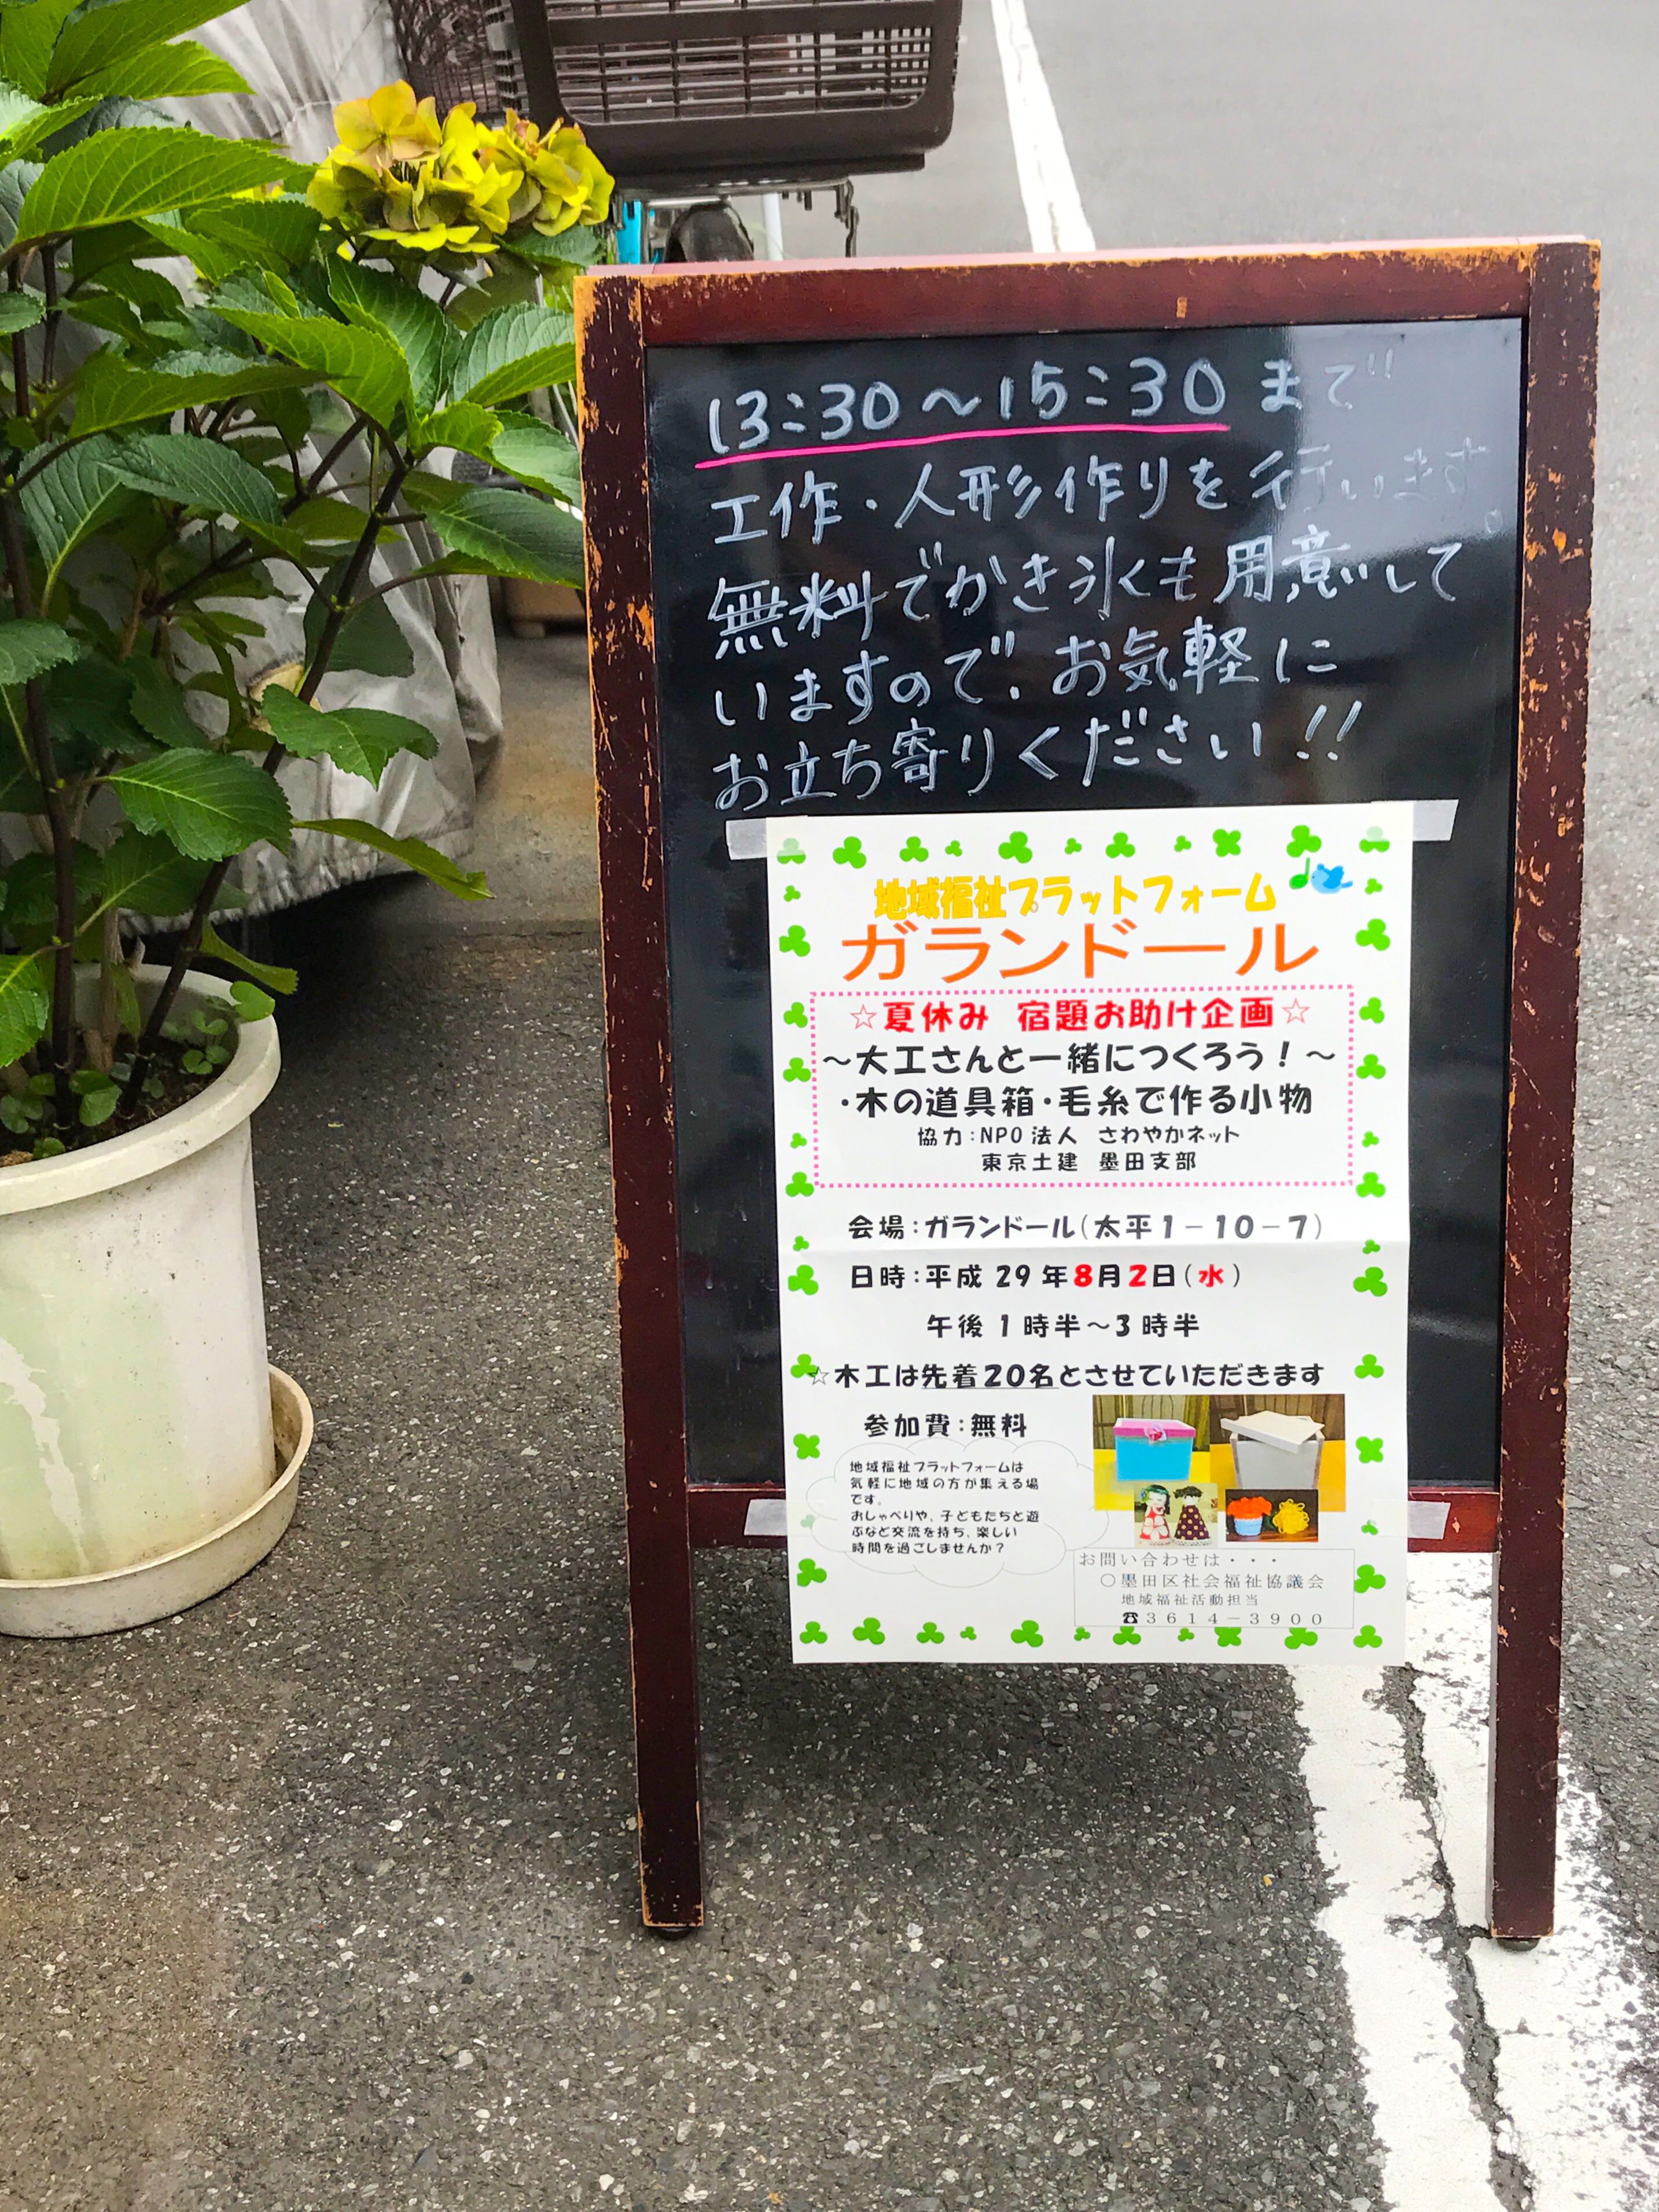 13:30～15:30まで
工作・人形作りを行います。
無料でかき氷も用意して
いますので、お気軽に
お立ち寄りください!!
地域福祉プラットフォーム
ガランドール
☆夏休み 宿題お助け企画☆
～大工さんと一緒につくろう！～
・木の道具箱・毛糸で作る小物
協力：NPO法人 さわやかネット
東京土建 墨田支部
会場：ガランドール（太平1－10－7）
日時：平成29年8月2日（水）
午後1時半～3時半
☆木工は先着20名とさせていただきます
参加費：無料
地域福祉プラットフォームは
気軽に地域の方が集える場
です。
おしゃべりや、子どもたちと遊
ぶなど交流を持ち、楽しい
時間を過ごしませんか？
お問い合わせは・・・
○墨田区社会福祉協議会
地域福祉活動担当
☎3614－3900